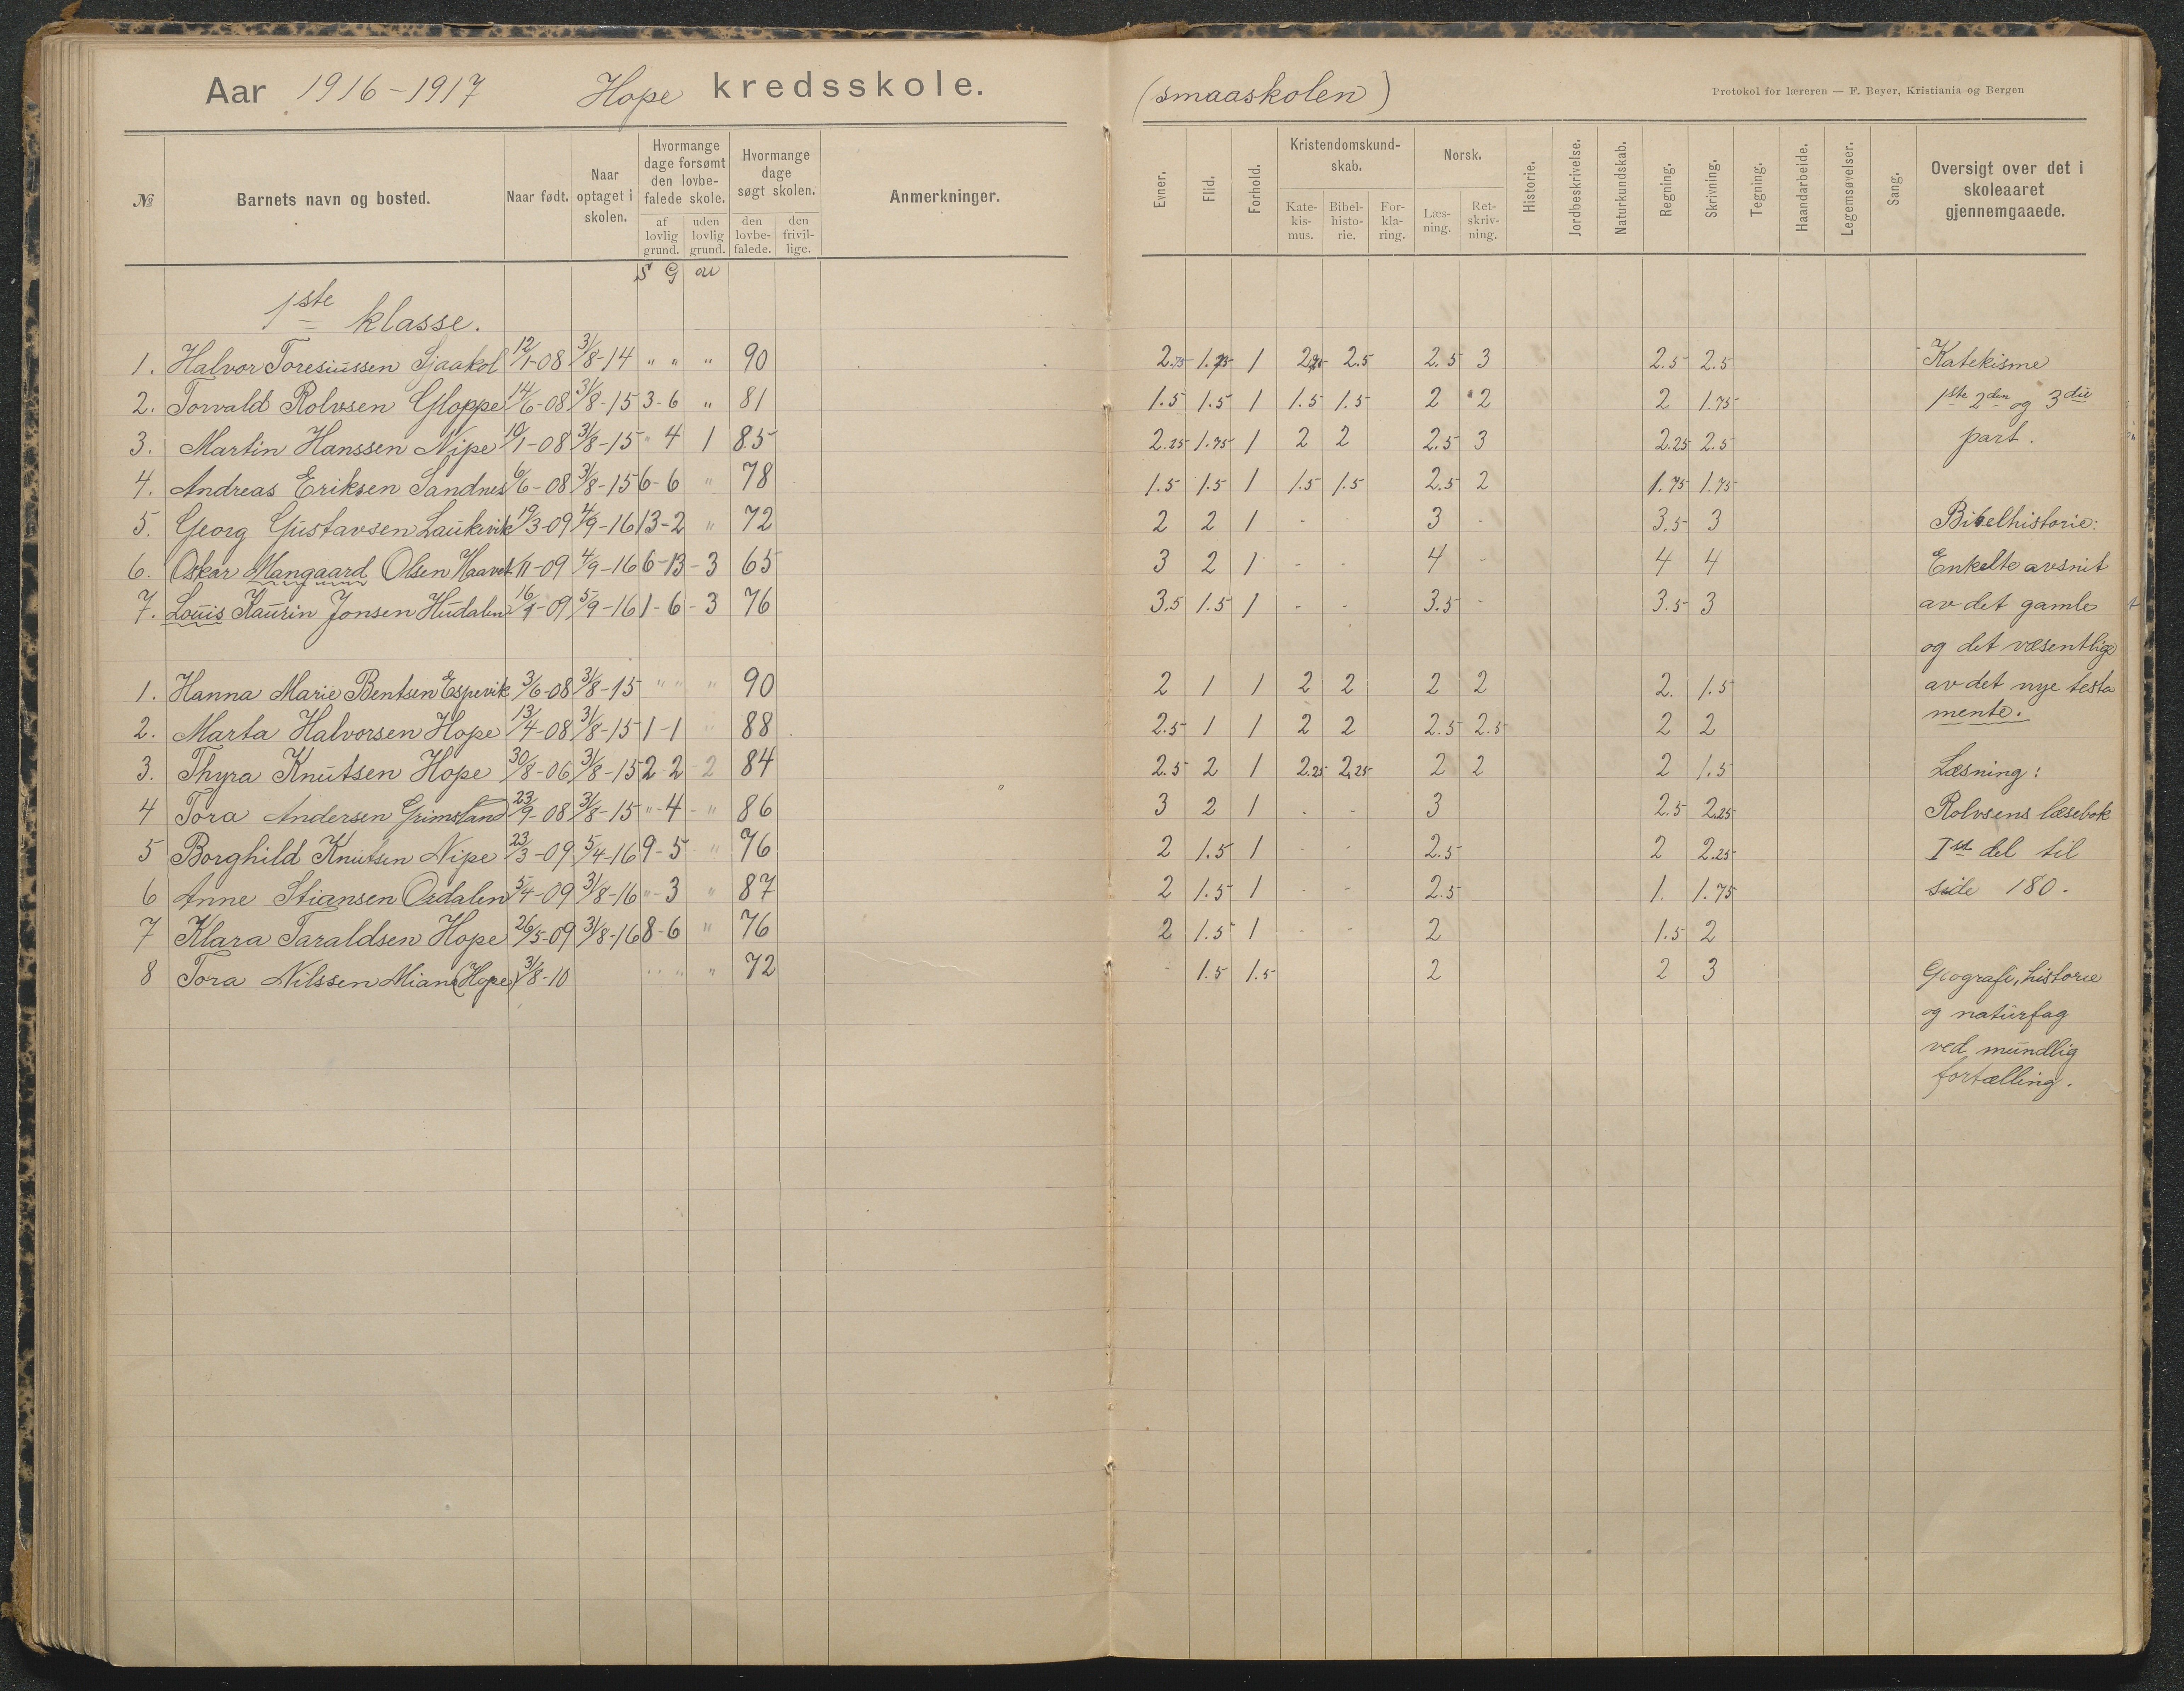 Aar 1916-1917 Hope kredsskole. (smaaskolen)
Protokol for læreren — F. Beyer, Kristiania og Bergen
№ Barnets navn og bosted. Naar født. Naar optaget i skolen. Hvormange dage forsømt den lovbefalede skole. af lovlig grund. uden lovlig grund. Hvormange dage søgt skolen. den lovbefalede. den frivillige. Anmerkninger.
Evner. Flid. Forhold. Kristendomskundskab. Katekismus. Bibelhistorie. Forklaring. Norsk. Læsning. Retskrivning. Historie. Jordbeskrivelse. Naturkundskab. Regning. Skrivning. Tegning. Haandarbeide. Legemsøvelser. Sang. Oversigt over det i skoleaaret gjennemgaaede.
S G au
1ste klasse.
1. Halvor Toresiussen 12/1-08 31/8-14 " " " 90 2.75 1.75 1 2.25 2.5 2.5 3 2.5 2.5 Katekisme
2. Torvald Rolvsen Gloppe 14/6-08 31/8-15 3-6 " 81 1.5 1.5 1 1.5 1.5 2 2 2 1.75 1ste 2den og 3die
3. Martin Hanssen Nipe 10/1-08 31/8-15 " 4 1 85 2.25 1.75 1 2 2 2.5 3 2.25 2.5 part.
4. Andreas Eriksen Sandnes 6/6-08 31/8-15 6-6 " 78 1.5 1.5 1 1.5 1.5 2.5 2 1.75 1.75
5. Georg Gustavsen Laukevik 19/3-09 4/9-16 13-2 " 72 2 2 1 - - 3 - 3.5 3 Bibelhistorie:
6. Oskar Mangaard Olsen Haavet 11-09 4/9-16 6-13-3 65 3 2 1 - - 4 - 4 4 Enkelte avsnit
7. Louis Kaurin Jonsen Hudalen 16/1-09 5/9-16 1-6-3 76 3.5 1.5 1 - - 3.5 - 3.5 3 av det gamle
og det væsentlige
1. Hanna Marie Bentsen Espevik 3/6-08 31/8-15 " " " 90 2 1 1 2 2 2 2 2. 1.5 av det nye testa
mente.
2. Marta Halvorsen Hope 13/4-08 31/8-15 1-1 " 88 2.5 1 1 2 2 2.5 2.5 2 2
3. Thyra Knutsen Hope 30/8-06 31/8-15 2-2-2 84 2.5 2 1 2.25 2,25 2 2 2 1.5 Læsning:
4 Tora Andersen Grimsland 23/9-08 31/8-15 "-4-" 86 3 2 1 - - 3 2.5 2.25 Rolvsens læsebok
5 Borghild Knutsen Nipe 23/3-09 5/4-16 9-5 " 76 2 1.5 1 - - 2.5 2 2.25 Ist del til
6 Anne Stiansen Ordalen 5/4-09 31/8-16 "-3 " 87 2 1.5 1 - - 2.5 1. 1.75 side 180.
7 Klara Taraldsen Hope 26/5-09 31/8-16 8-6 " 76 2 1.5 1 - - 2 1.5 2
8 Tora Nilssen Miane (Hope) 31/8-10 " " " 72 - 1.5 1.5 2 2 3 Geografi, historie
og naturfag
ved mundlig
fortælling.